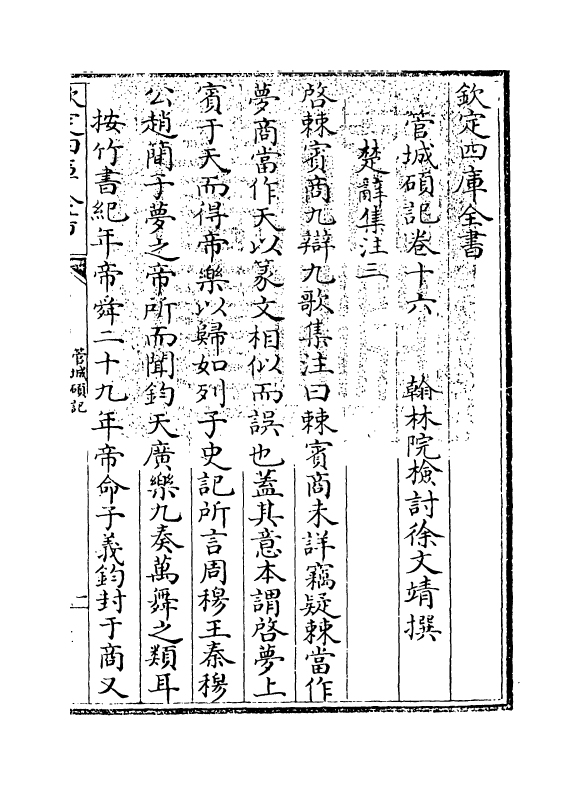 欽定四庫全書
管城碩記卷十六 翰林院檢討徐文靖撰
楚辭集注三
啓棘賓商九辯九歌集注曰棘賓商未詳竊疑棘當作
夢商當作天以篆文相似而誤也蓋其意本謂啓夢上
賓于天而得帝樂以歸如列子史記所言周穆王秦穆
公趙簡子夢之帝所而聞鈞天廣樂九奏萬舞之類耳
按竹書紀年帝舜二十九年帝命子義鈞封于商又
欽定四庫全書
管城碩記